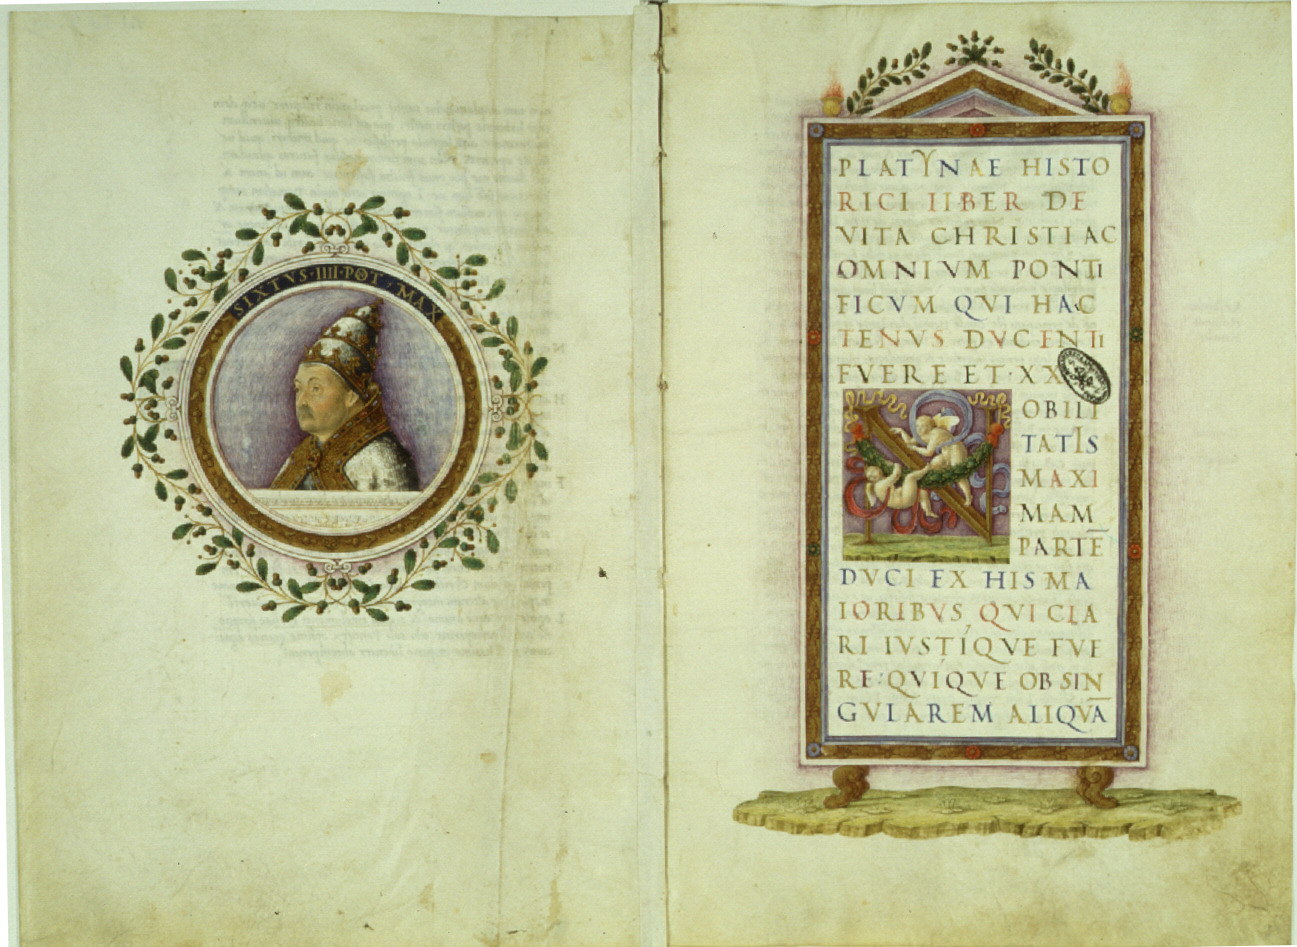 SIXTVS · IIII · POT · MAX
PLATYNAE HISTO
RICI LIBER DE
VITA CHRISTI AC
OMNIVM PONTI
FICVM QVI HAC
TENVS DVCENTI
FVERE ET · XX
OBILI
TATIS
MAXI
MAM
PARTĒ
DVCI EX HIS MA
IORIBVS QVI CLA
RI IVSTIQVE FVE
RE: QVIQVE OB SIN
GVLAREM ALIQVĀ